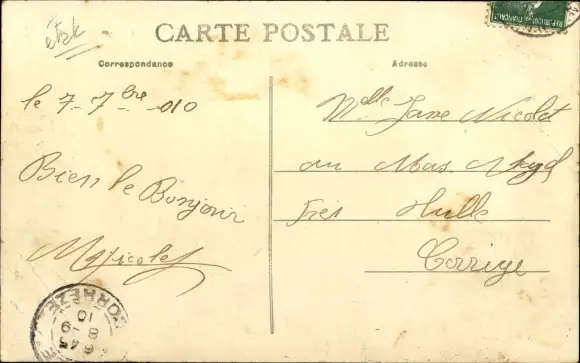 étsk
CARTE POSTALE
Correspondance
Adresse
le 7-7bre 010
Bien le Bonjour
Melle Jane Nicolet
au Mas
Près Hulle
Corrèze
REPUBLIQUE FRANÇAISE
CORREZE
6 45
8 - 9
10